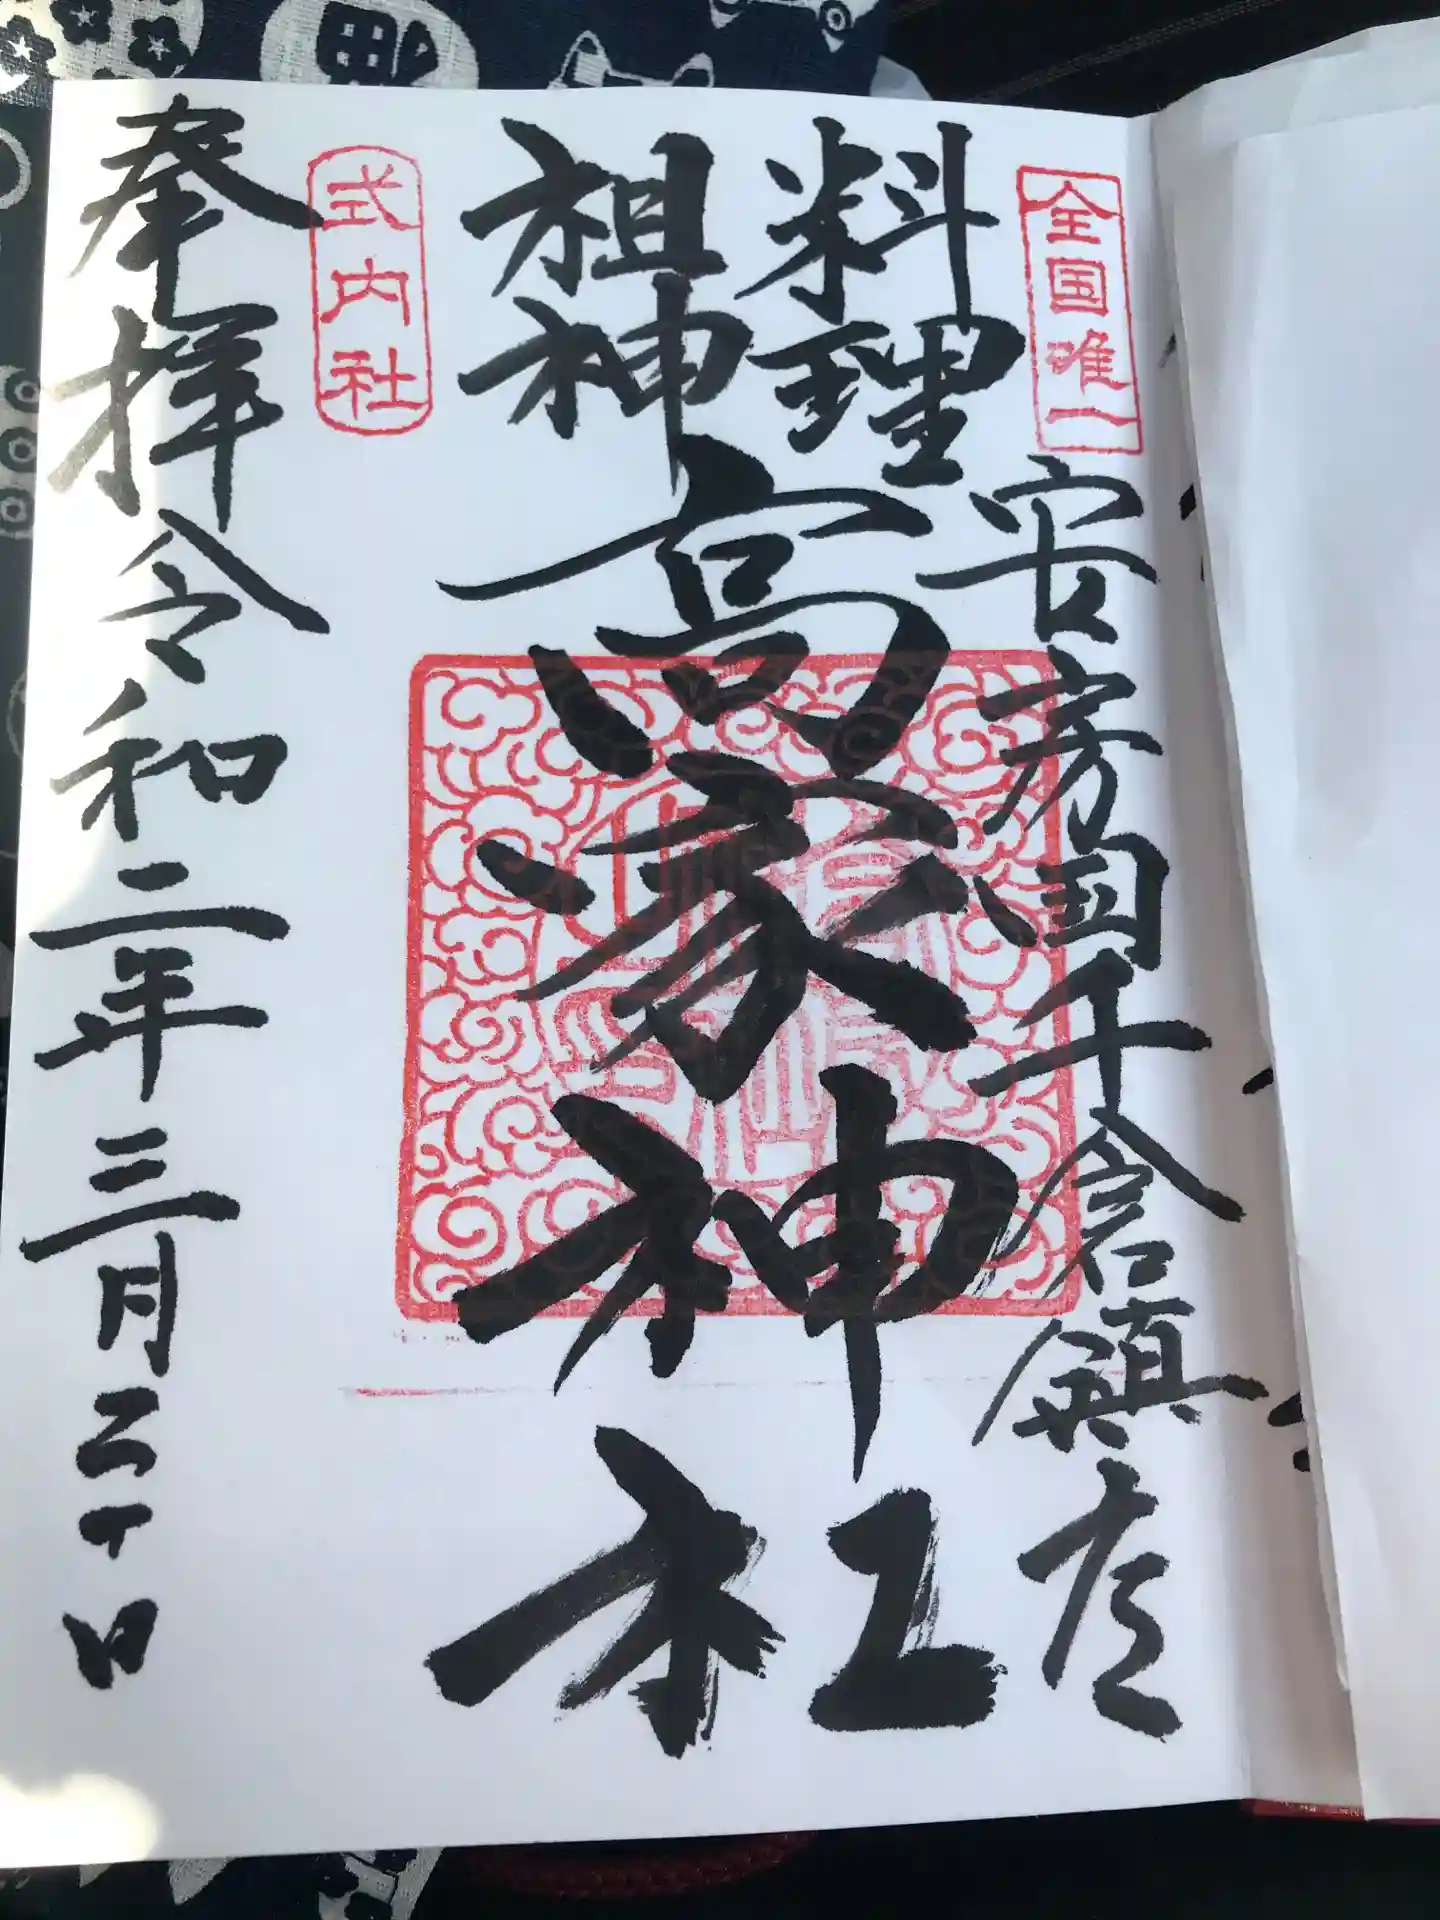 全国唯一
安房国千倉鎮座
料理
祖神
高家神社
式内社
奉拝
令和二年三月二十日